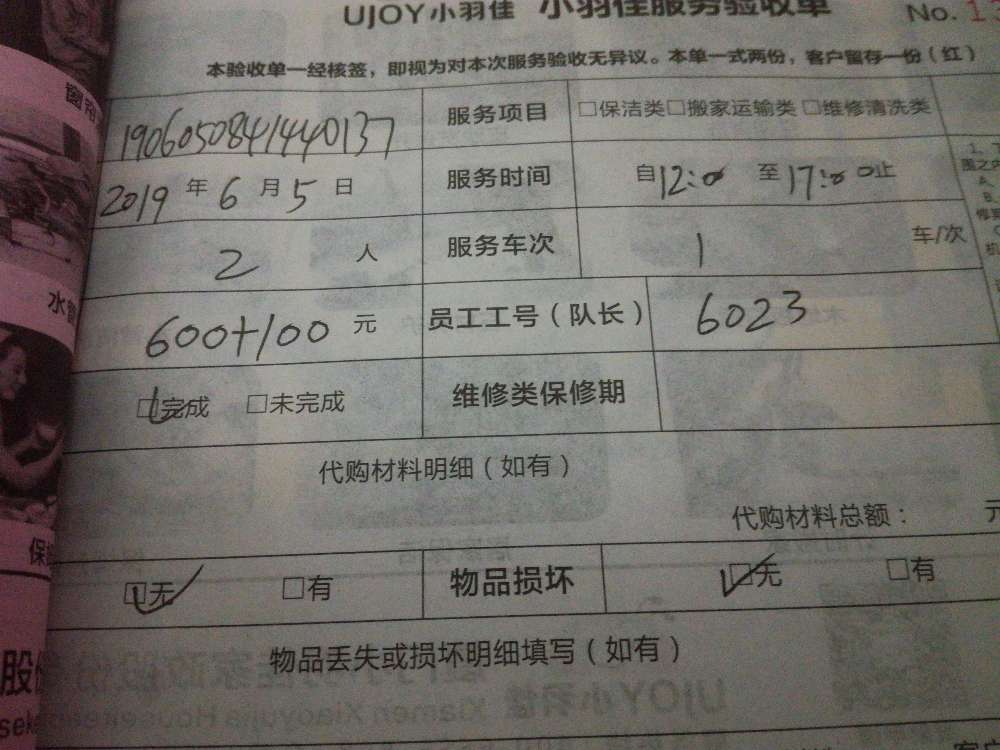 UJOY小羽佳 小羽佳服务验收单
No. 1
本验收单一经核签，即视为对本次服务验收无异议。本单一式两份，客户留存一份（红）
1906050841440137 服务项目 □保洁类□搬家运输类 □维修清洗类
2019 年 6 月 5 日 服务时间 自12:00 至 17:00止
2 人 服务车次 1 车/次
600+100 元 员工工号（队长） 6023
☑完成 □未完成 维修类保修期
代购材料明细（如有）
代购材料总额： 元
☑无 □有 物品损坏 ☑无 □有
物品丢失或损坏明细填写（如有）